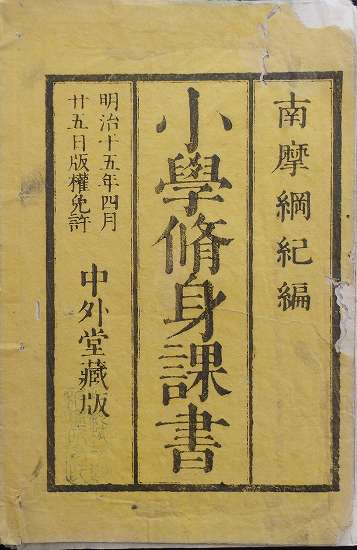 南摩綱紀編
小學脩身課書
明治十五年四月
廿五日版權免許
中外堂藏版